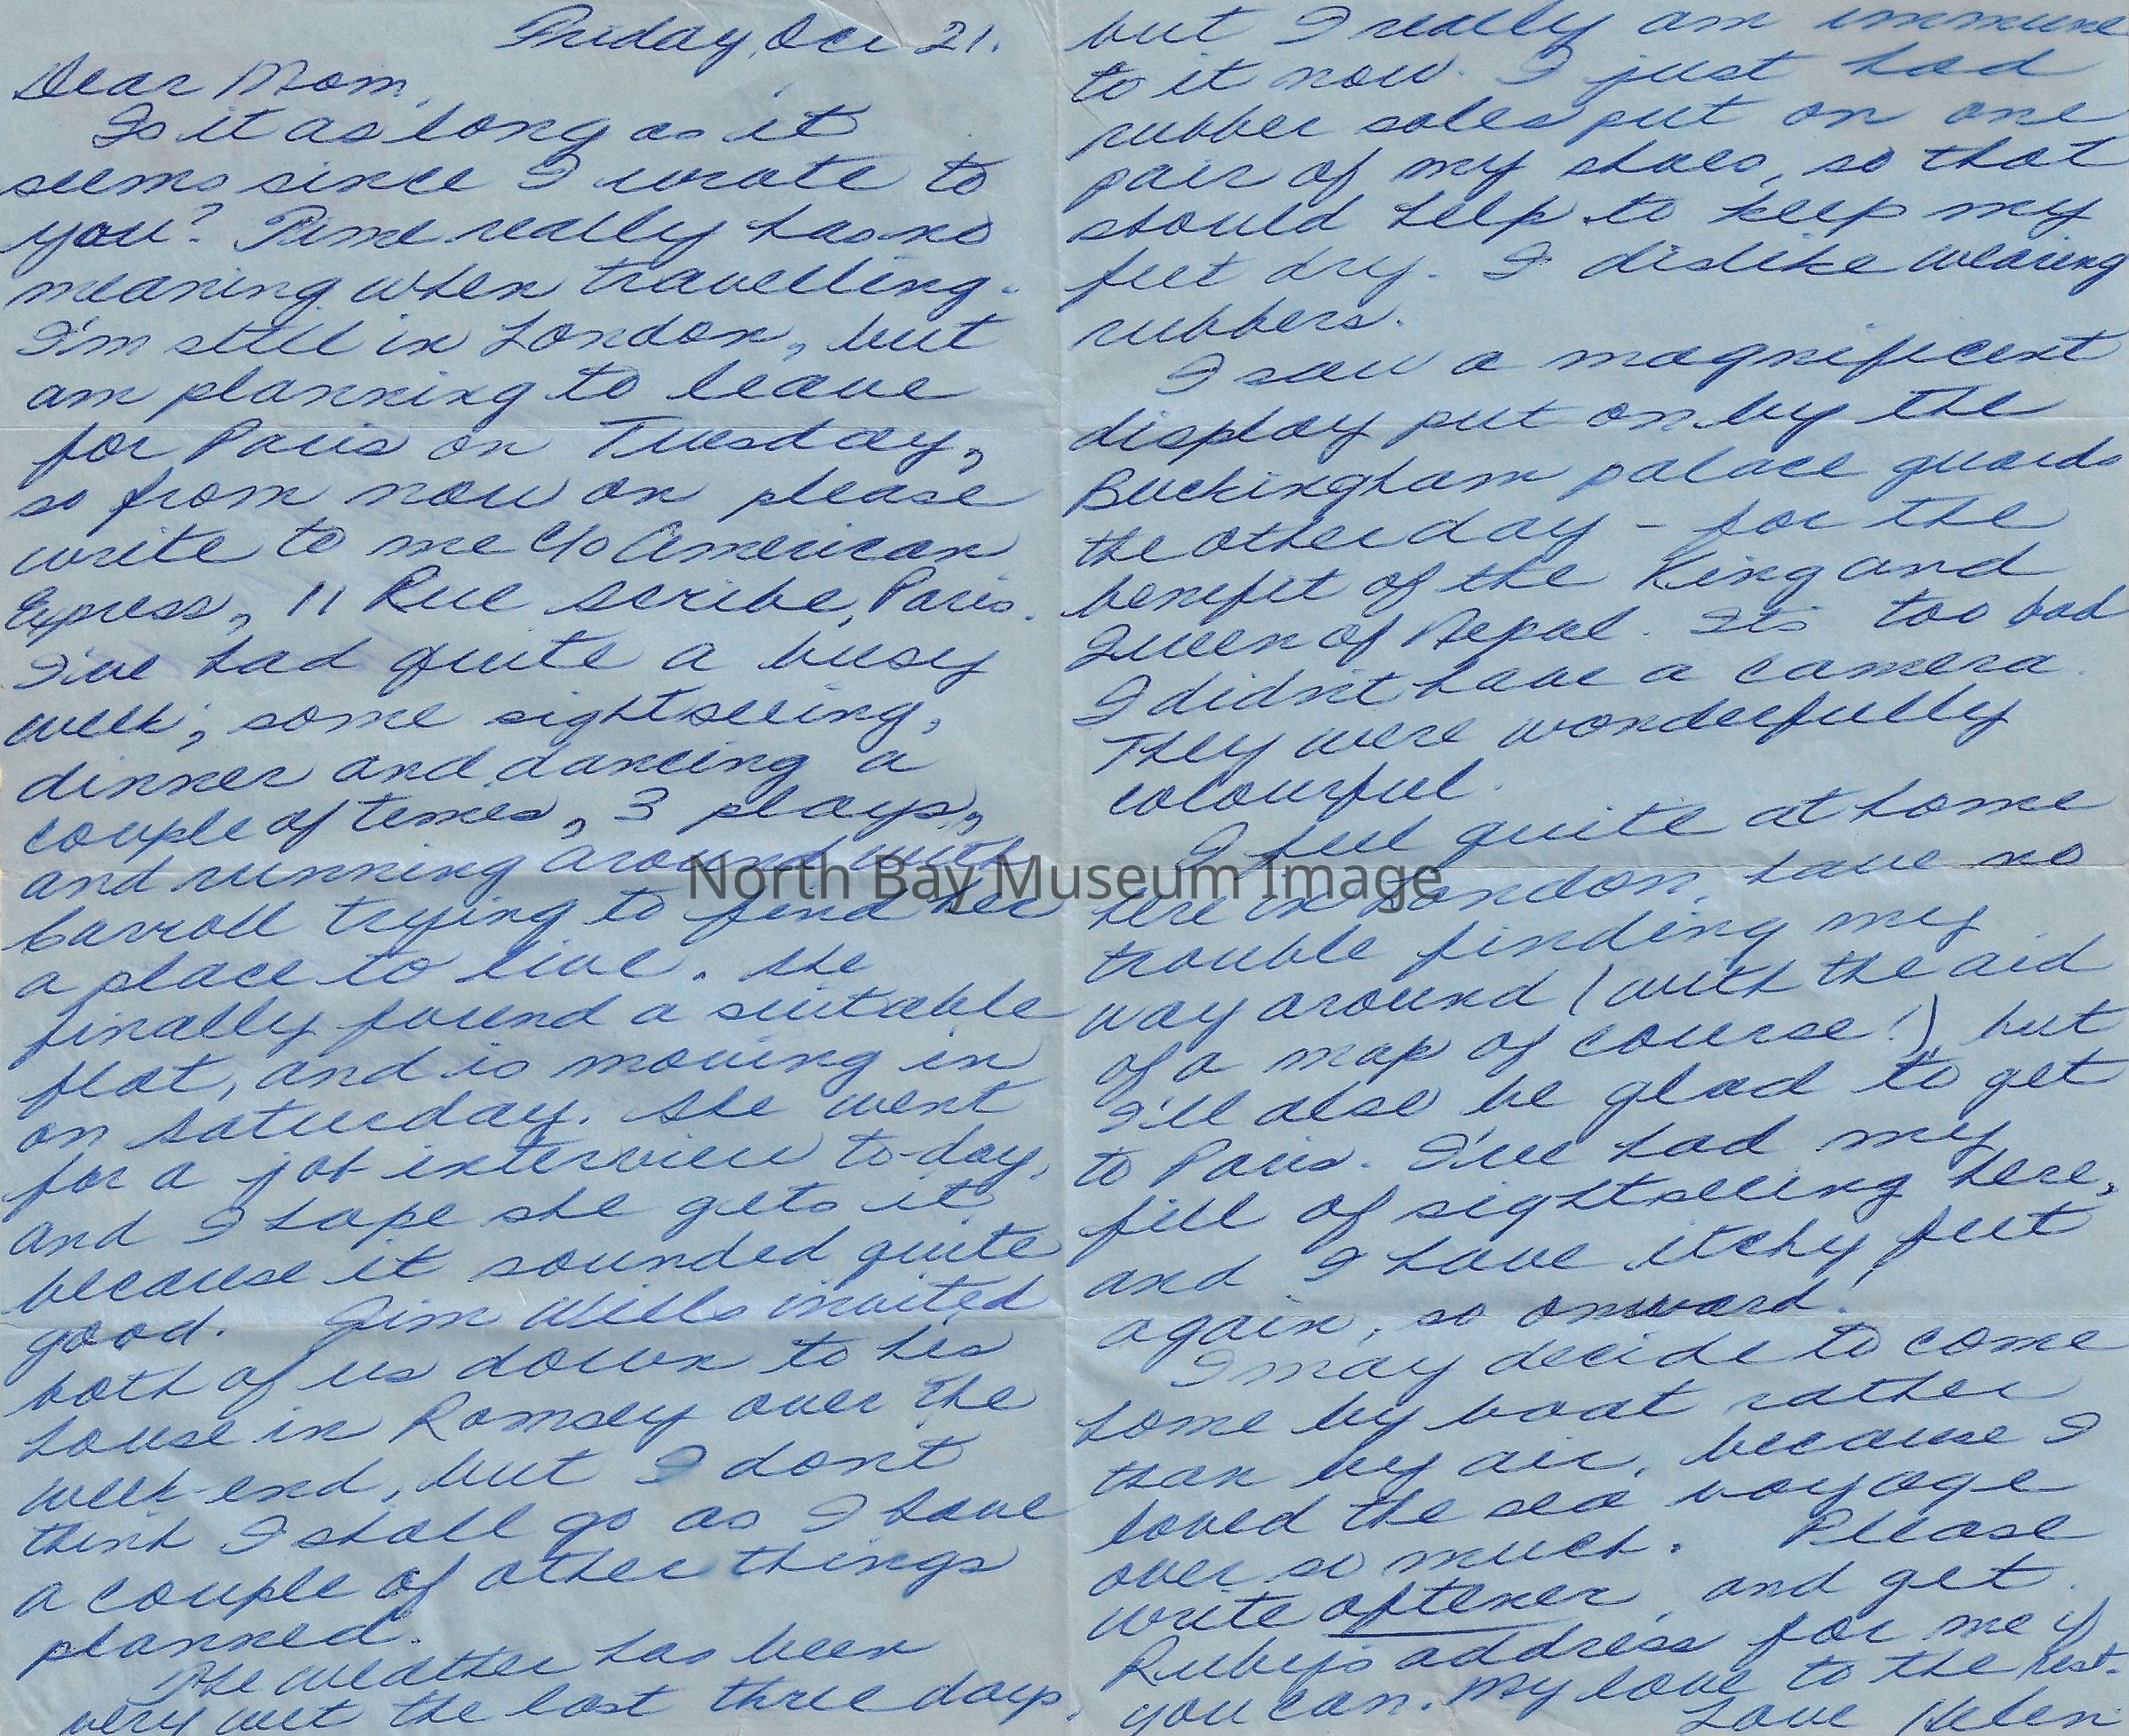 Friday, Oct 21.
Dear Mom,
Is it as long as it
seems since I wrote to
you? Time really has no
meaning when travelling.
I'm still in London, but
am planning to leave
for Paris on Tuesday,
so from now on please
write to me c/o American
Express, 11 Rue Scribe, Paris.
I've had quite a busy
week; some sightseeing,
dinner and dancing a
couple of times, 3 plays,
and running around with
Carroll trying to find her
a place to live. She
finally found a suitable
flat, and is moving in
on Saturday. She went
for a job interview to-day,
and I hope she gets it
because it sounded quite
good. Jim Wills invited
both of us down to his
house in Romsey over the
week-end, but I don't
think I shall go as I have
a couple of other things
planned.
The weather has been
very wet the last three days,
but I really am immune
to it now. I just had
rubber soles put on one
pair of my shoes, so that
should help to keep my
feet dry. I dislike wearing
rubbers.
I saw a magnificent
display put on by the
Buckingham palace guards
the other day - for the
benefit of the King and
Queen of Nepal. Its too bad
I didn't have a camera.
They were wonderfully
colourful.
I feel quite at home
here in London, have no
trouble finding my
way around (with the aid
of a map of course!), but
I'll also be glad to get
to Paris. I've had my
fill of sightseeing here,
and I have itchy feet
again, so onward!
I may decide to come
home by boat rather
than by air, because I
loved the sea voyage
over so much. Please
write oftener, and get
Ruby's address for me if
you can. My love to the rest.
Love Helen
North Bay Museum Image